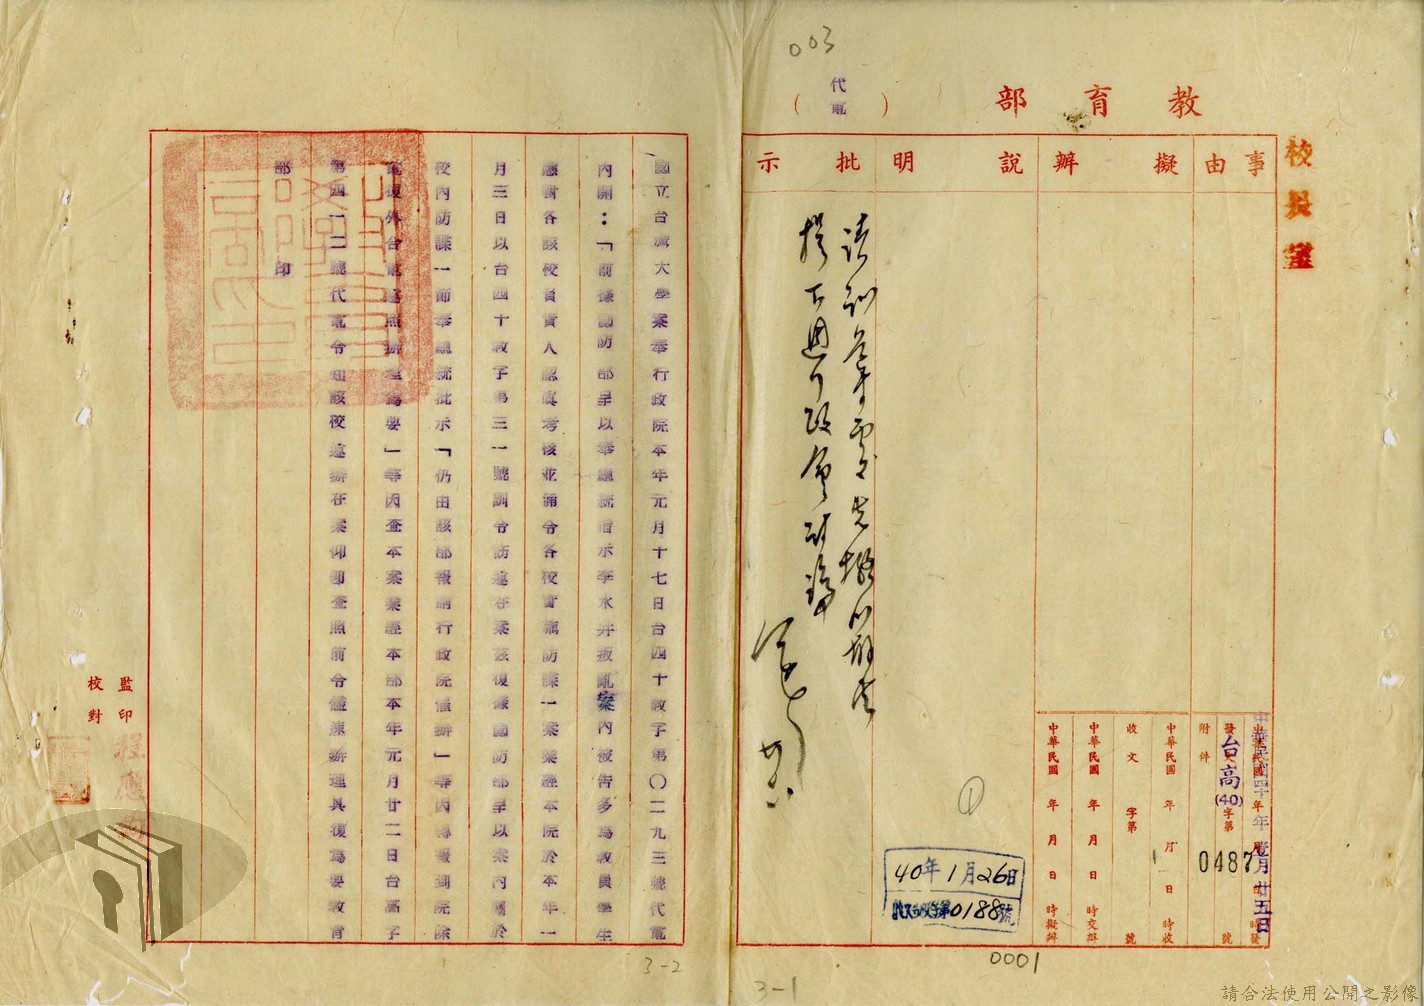 003
教育部
(代電)
校長室
事由
擬辦
說明
批示
中華民國四十年壹月廿五日
發文台高(40)字第0487號
附件
中華民國 年 月 日 時收
收文 字第 號
中華民國 年 月 日 時交辦
中華民國 年 月 日 時擬辦
①
40年1月26日
0188號
提下週行政會討論
0001
3-1
國立台灣大學案奉行政院本年元月十七日台四十教字第〇二九三號代電
內開：「前據國防部呈以奉總統指示李水井叛亂案內被告多為教員學生
應責各該校負責人認真考核並通令各校實施防諜一案業經本院於本年一
月三日以台四十教字第三一號訓令飭遵在案茲復據國防部呈以案內關於
校內防諜一節奉總統批示「仍由該部報請行政院催辦」等因轉報到院除
電復外合電遵照辦理為要」等因查本案業經本部本年元月廿二日台高字
第四一二號代電令知該校遵辦在案仰即查照前令儘速辦理具復為要教育
部 印
監印
校對
3-2
請合法使用公開之影像